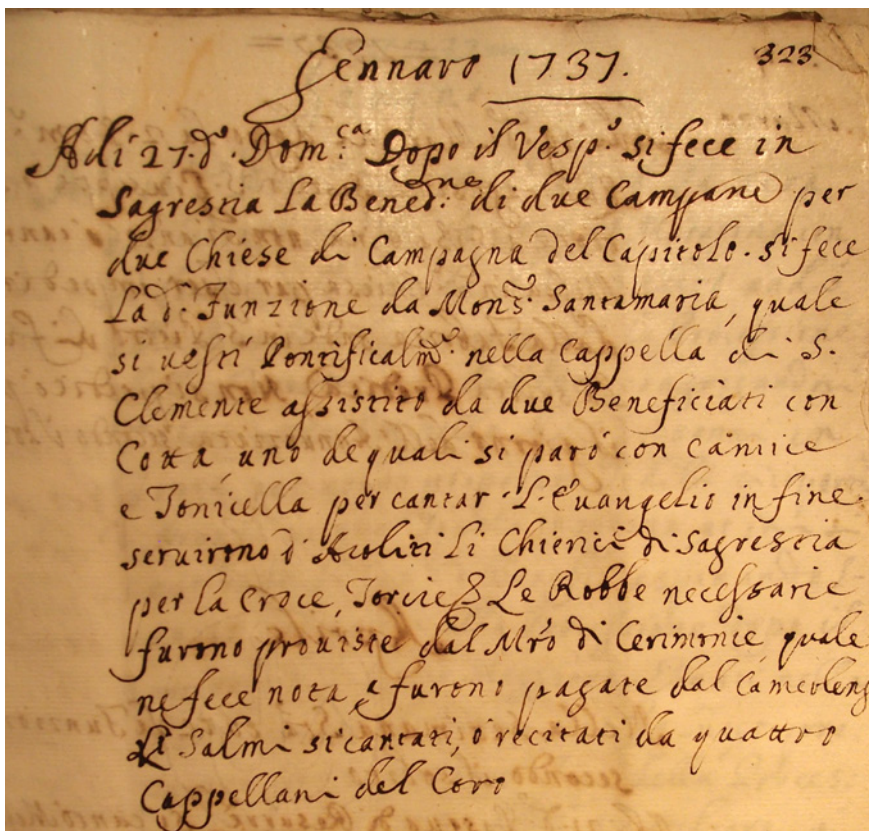 Gennaro 1737. 323
Adi 27. d.º Dom.ca Dopo il Vesp.º si fece in
Sagrestia La Bened.ne di due Campane per
due Chiese di Campagna del Capitolo. si fece
La d.ª Funzione da Mons.r Santamaria, quale
si vestì Pontificalm.e nella Cappella di S.
Clemente assistito da due Beneficiati con
Cotta, uno de quali si parò con Camice
e Tonicella per cantar L'Evangelio in fine.
servirono d'Acoliti Li Chierici di Sagrestia
per la Croce, Torcie & Le Robbe necessarie
furono proviste dal Mrõ di Cerimonie, quale
ne fece nota, e furono pagate dal Camerleng
Li Salmi si cantati, ò recitati da quattro
Cappellani del Coro